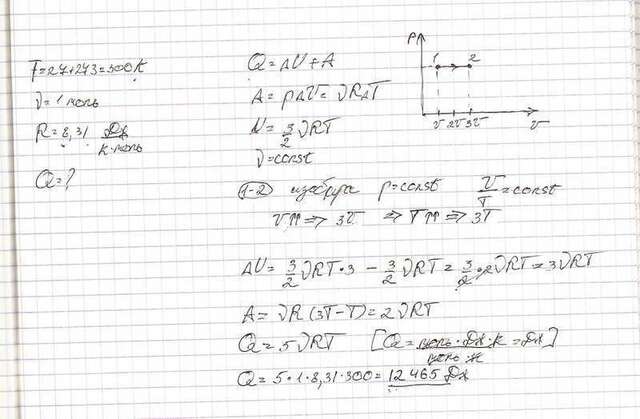 T=27+273=300К
ν=1 моль
R=8,31 Дж/К·моль
Q=?
Q=ΔU+A
A=pΔV=νRΔT
U=3/2 νRT
ν=const
1-2 изобара p=const V/T=const
V↑⇒3V ⇒T↑⇒3T
ΔU=3/2 νRT·3-3/2 νRT=3/2·2νRT=3νRT
A=νR(3T-T)=2νRT
Q=5νRT [Q=моль·Дж·К/моль·К=Дж]
Q=5·1·8,31·300=12465 Дж
P
1 2
V 2V 3V V